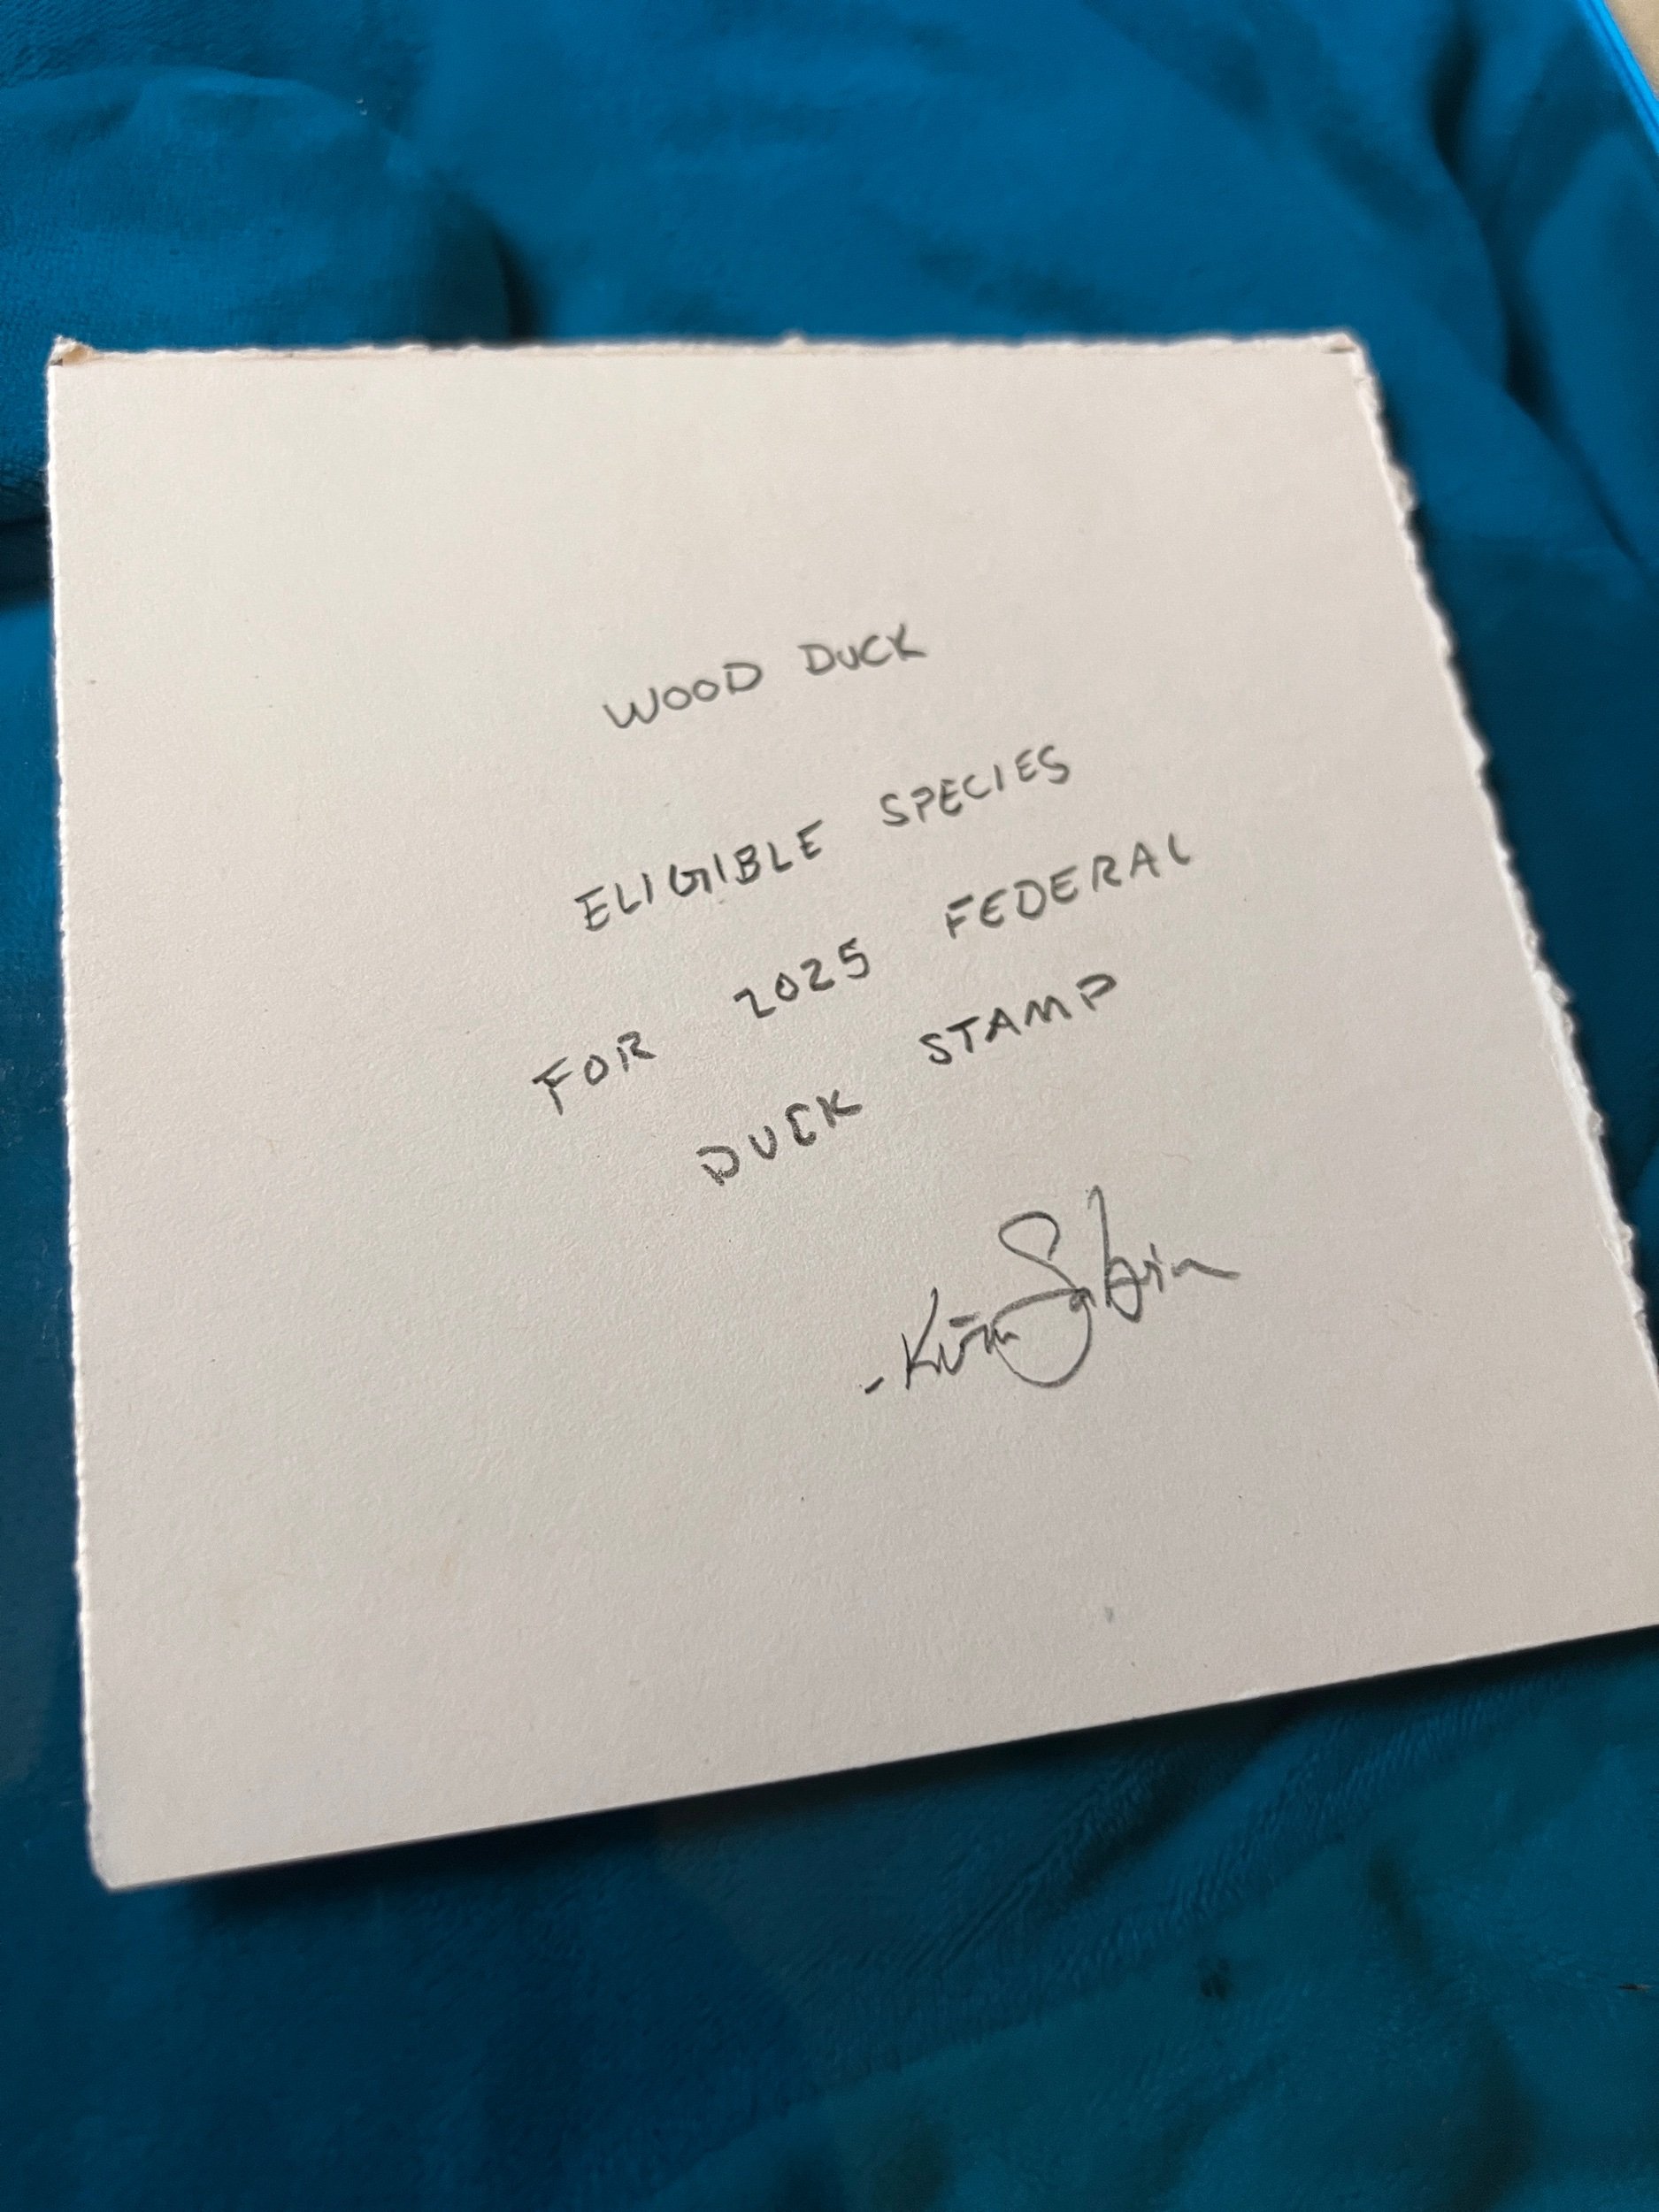 WOOD DUCK
ELIGIBLE SPECIES
FOR 2025 FEDERAL
DUCK STAMP